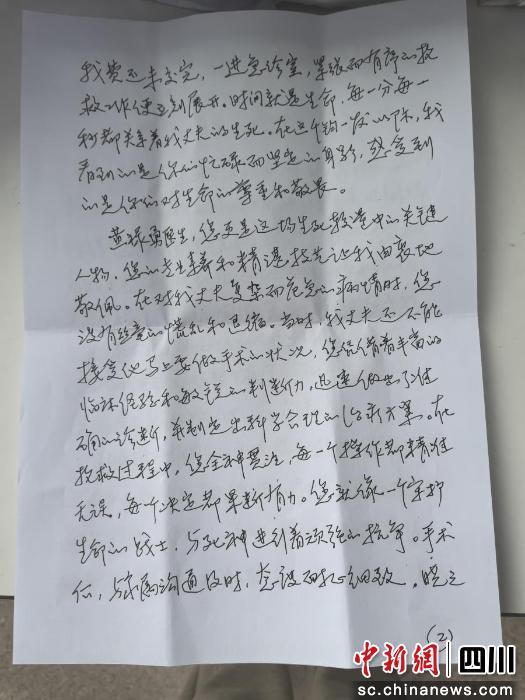 我费还未交完，一进急诊室，紧张而有序的抢
救工作便立刻展开。时间就是生命，每一分每一
秒都关系着我丈夫的生死。在这千钧一发以下，我
看到的是你们忙碌而坚定的身影，感受到
的是你们对生命的尊重和敬畏。
黄禄勇医生，您更是这场生死较量中的关键
人物。您的专业素养和精湛技艺让我由衷地
敬佩。在对我丈夫复杂而危急的病情时，您
没有丝毫的慌乱和退缩。当时，我丈夫还不能
接受他马上要做手术的状况，您凭借着丰富的
临床经验和敏锐的判断力，迅速做出了准
确的诊断，并制定出科学合理的治疗方案。在
抢救过程中，您全神贯注，每一个操作都精准
无误，每一个决定都果断有力。您就像一个守护
生命的战士，与死神进行着顽强的抗争。手术
后，与家属沟通及时，态度耐心细致。晓之
(2)
中新網 四川
sc.chinanews.com.cn